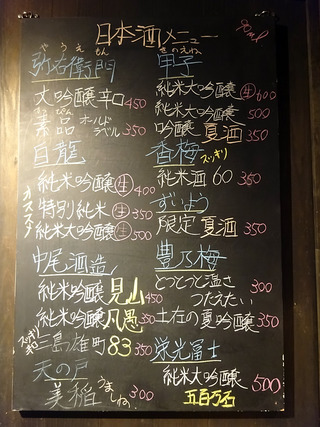 日本酒メニュー
90ml
やうえもん
弥右衛門
大吟醸辛口 450
オールドラベル 350
白龍
オススメ
純米吟醸 生 400
特別純米 生 350
純米大吟醸 生 500
中尾酒造
純米吟醸 見山 450
純米吟醸 凡愚 350
スッキリ
三島雄町 83 350
天の戸
美稲 うましね 300
きのえね
甲子
純米大吟醸 生 600
純米大吟醸 500
吟醸 夏酒 350
香梅 スッキリ
純米酒 60 350
ずいよう
限定 夏酒 350
豊乃梅
とつとつと温さ
つたえたい 300
土佐の夏吟醸 350
栄光冨士
純米大吟醸 500
五百万石